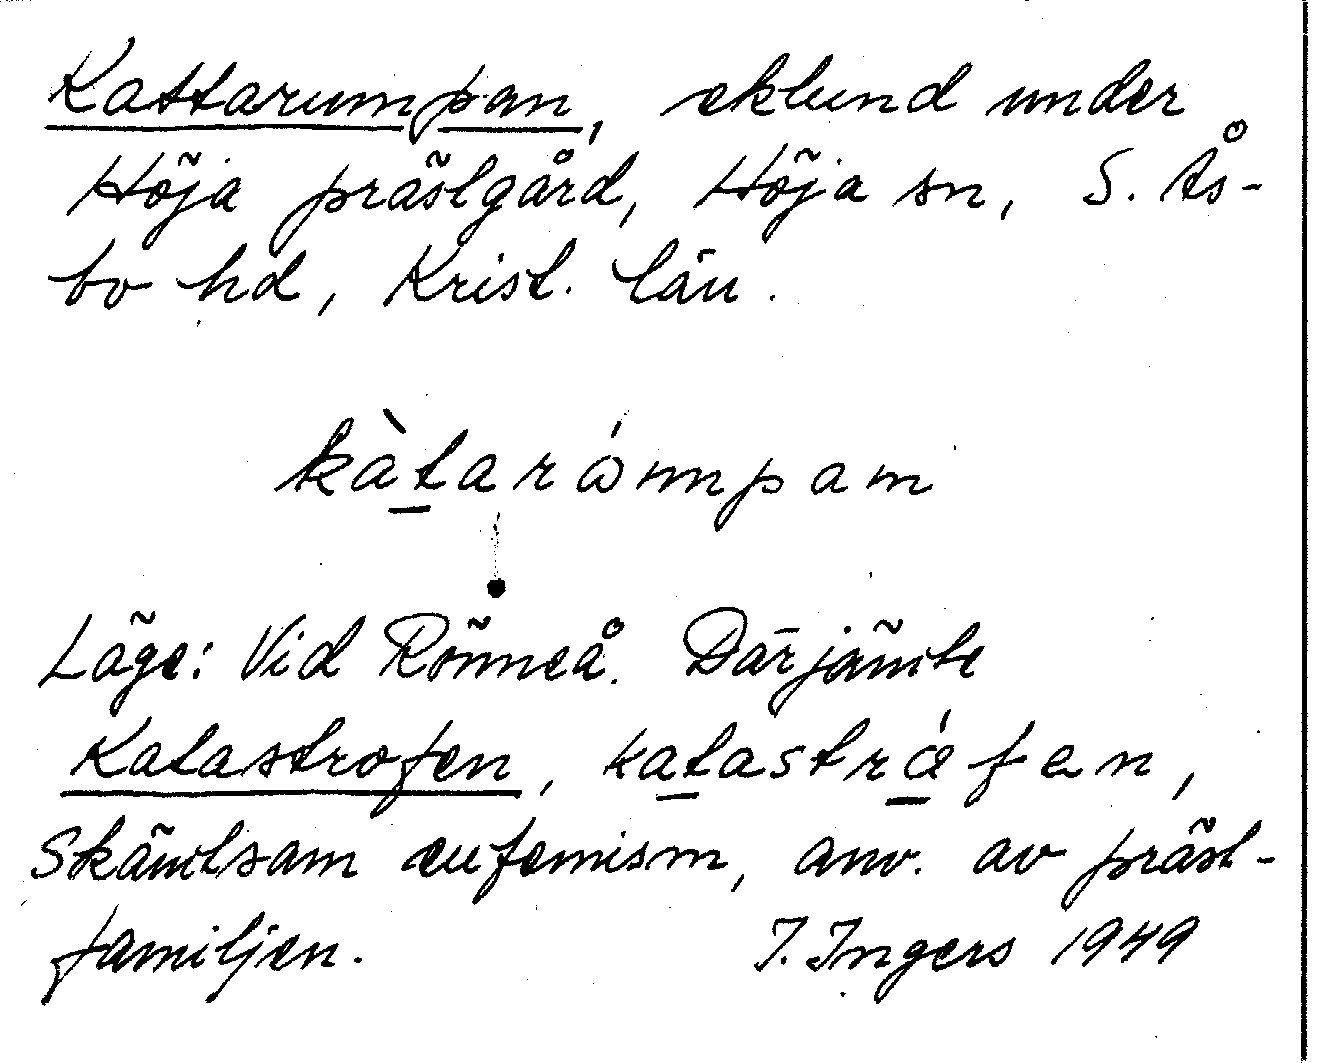 Kattarumpan, eklund under
Höja prästgård, Höja sn, S. Ås-
bo hd, Krist. län.
kàtarómpam
Läge: Vid Rönneå. Därjämte
Katastrofen, katastråfen,
Skämtsam eufemism, anv. av präst-
familjen. I. Ingers 1949